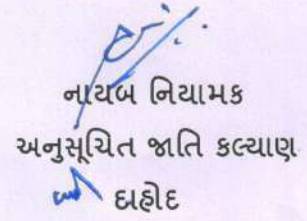 નાયબ નિયામક
અનુસૂચિત જાતિ કલ્યાણ
દાહોદ